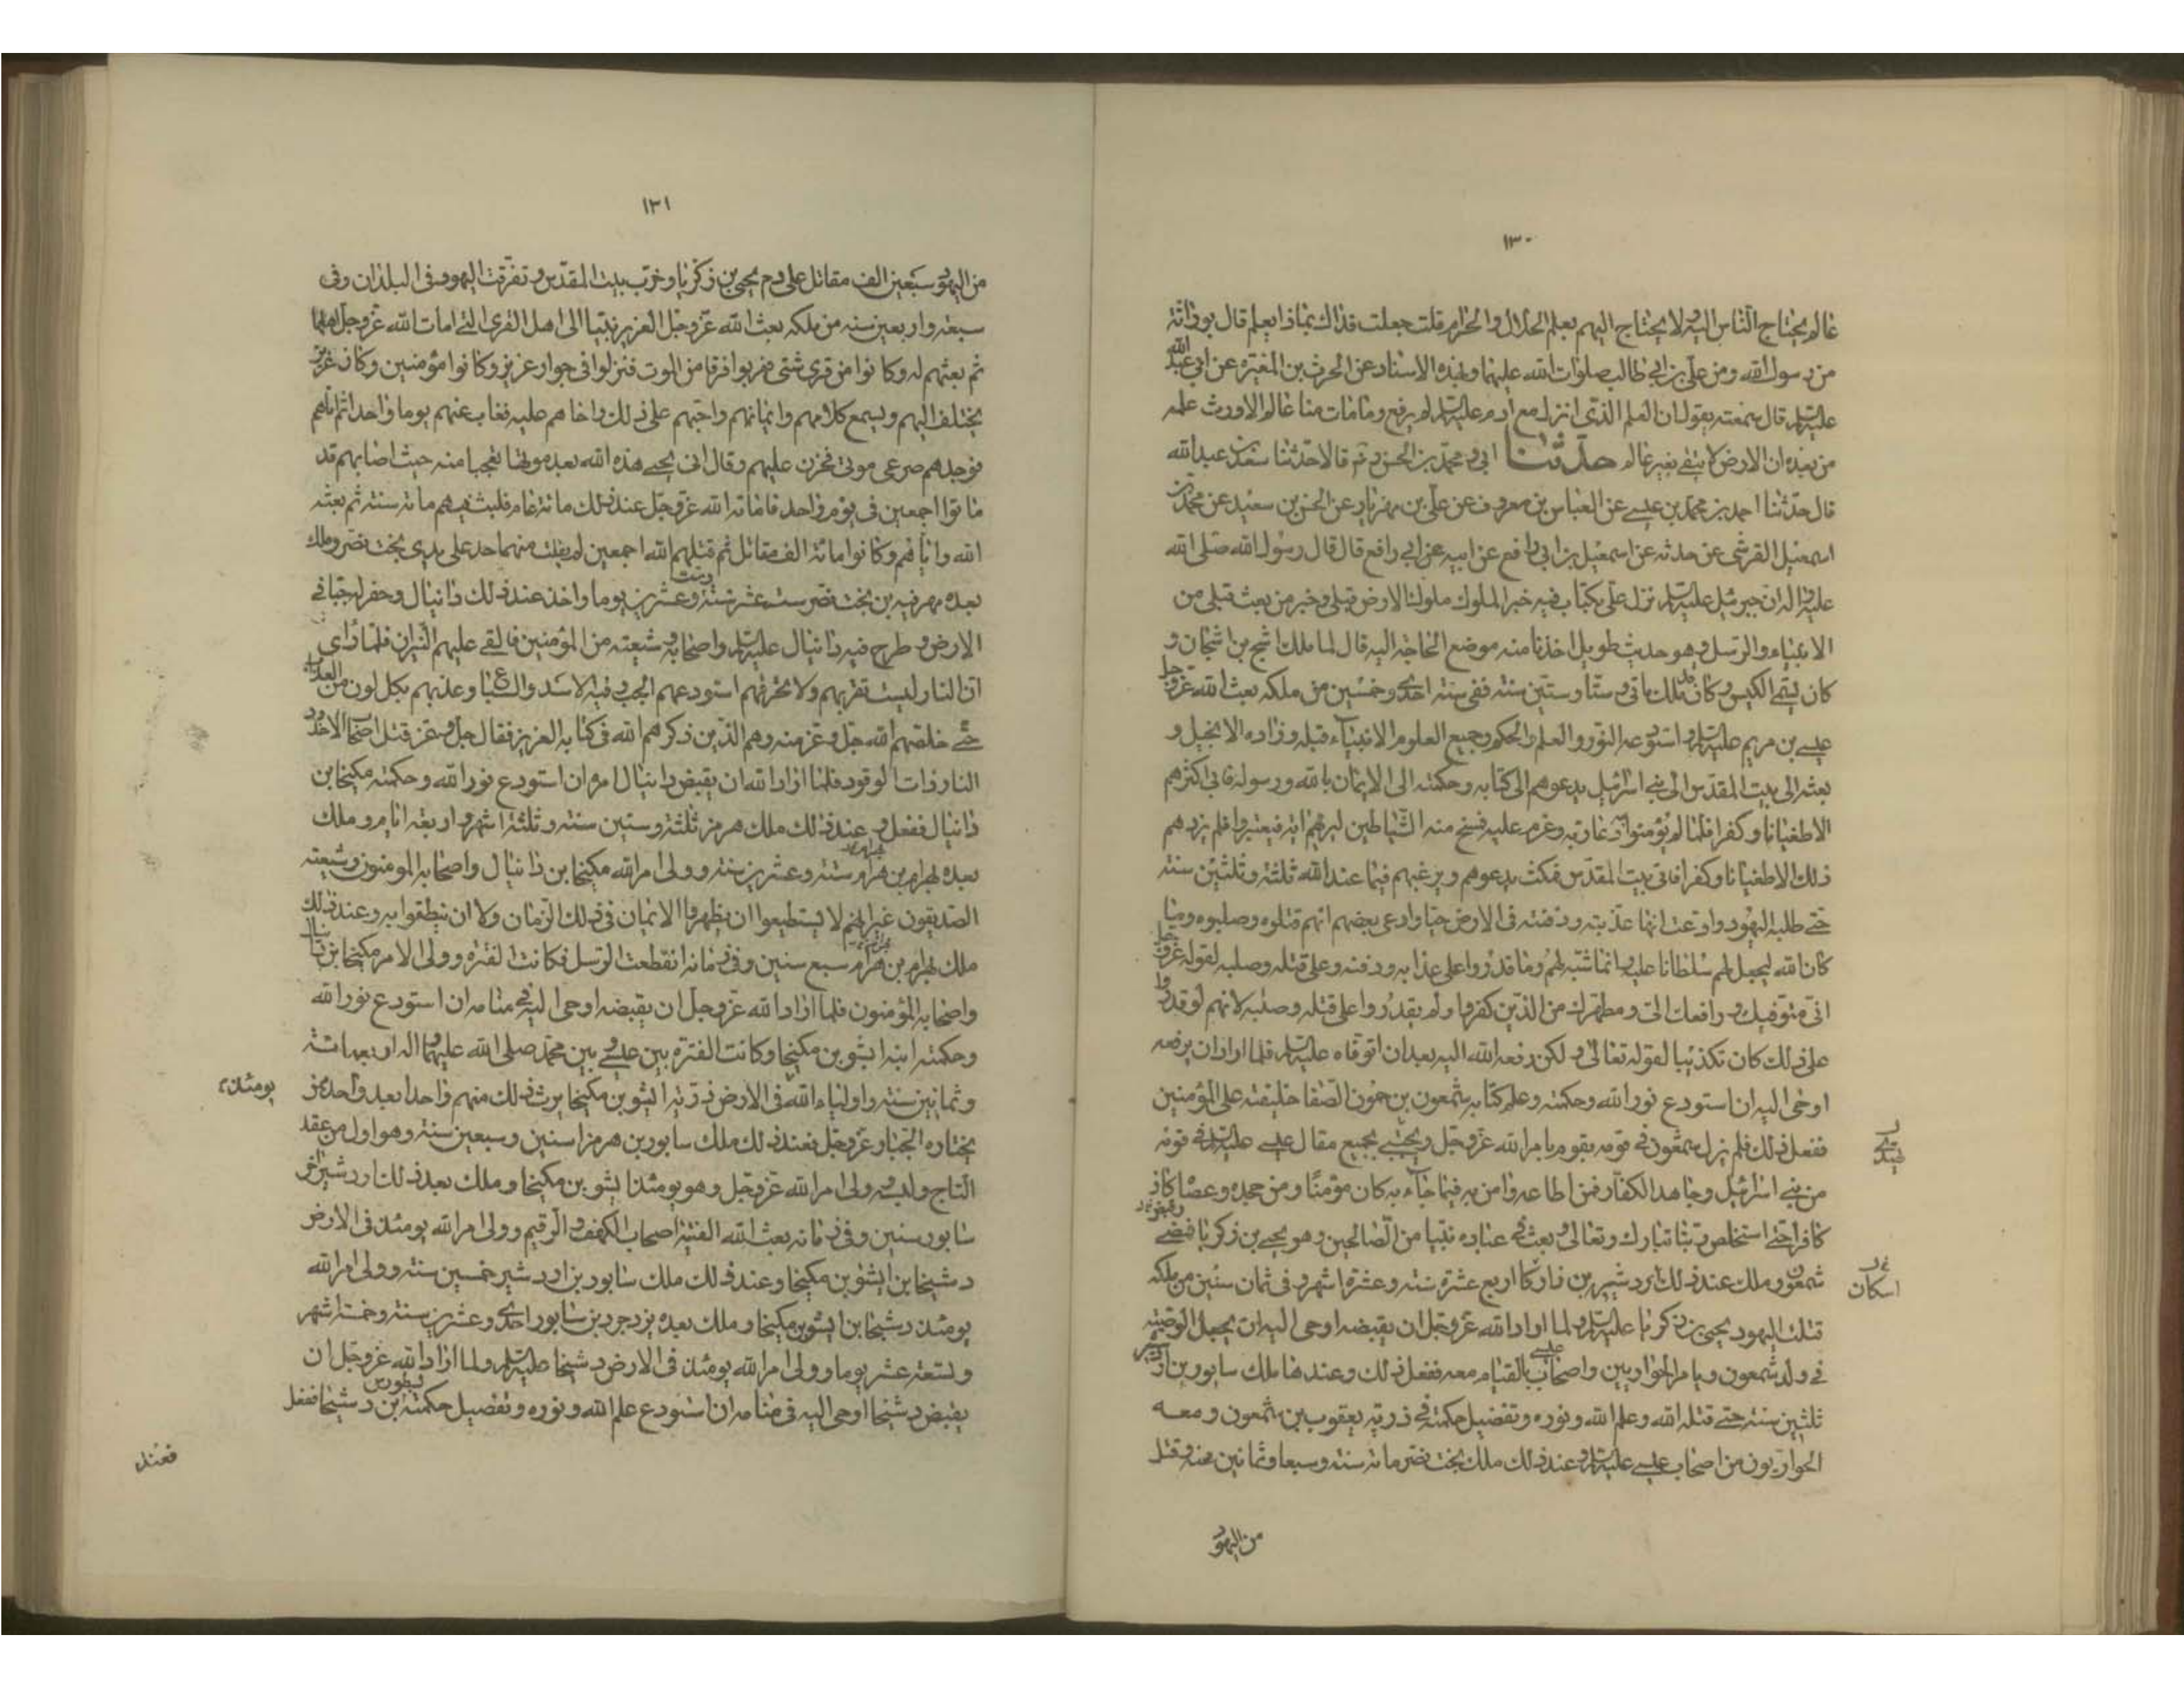 ١٣٠
عالم يحتاج الناس اليه ولا يحتاج اليهم يعلم الحلال والحرام قلت جعلت فداك بماذا يعلم قال بوراثة
من رسول الله ومن علي بن ابي طالب صلوات الله عليهما وبهذه الاسناد عن الحرث بن المغيرة عن ابي عبد الله
عليه السلام قال سمعته يقول ان العلم الذي انزل مع ادم عليه السلام لم يرفع وما مات منا عالم الا ورث علمه
من بعده ان الارض لا تبقى بغير عالم حدثنا ابي و محمد بن الحسن رَه قالا حدثنا سعد بن عبدالله
قال حدثنا احمد بن محمد بن عيسى عن العباس بن معروف عن علي بن مهزيار عن الحسن بن سعيد عن محمد بن
اسمعيل القرشي عن حدثه عن اسمعيل بن ابي رافع عن ابيه عن ابي رافع قال قال رسول الله صلى الله
عليه واله ان جبرئيل عليه السلام نزل علي بكتاب فيه خبر الملوك ملوك الارض قبلي وخبر من بعث قبلي من
الانبياء والرسل وهو حديث طويل اخذنا منه موضع الحاجة اليه قال لما ملك اشبح بن اشجان و
كان يسمى الكيس وكان قد ملك مأتي وستا وستين سنة ففي سنة احدى وخمسين من ملكه بعث الله عز وجل
عيسى بن مريم عليه السلام واستودعه النور والعلم والحكم وجميع العلوم الانبياء قبله وزاده الانجيل و
بعثه الى بيت المقدس الى بني اسرائيل يدعوهم الى كتابه وحكمته الى الايمان بالله ورسوله فابى اكثرهم
الا طغيانا وكفرا فلما لم يؤمنوا دعا ربه وعزم عليه فمسخ منه الشياطين ليريهم اية فيعتبروا فلم يزدهم
ذلك الا طغيانا وكفرا فاتى بيت المقدس فمكث يدعوهم ويرغبهم فيما عند الله ثلثة وثلثين سنة
حتى طلبه اليهود وادعت انها عذبته ودفنته في الارض حيا وادعى بعضهم انهم قتلوه وصلبوه وما
كان الله ليجعل لهم سلطانا عليه وانما شبه لهم وما قدروا على عذابه ودفنه وعلى قتله وصلبه لقوله عز وجل
اني متوفيك ورافعك الي ومطهرك من الذين كفروا ولم يقدروا على قتله وصلبه لانهم لو قدروا
على ذلك كان تكذيبا لقوله تعالى ولكن رفعه الله اليه بعد ان توفاه عليه السلام فلما اراد ان يرفعه
اوحى اليه ان استودع نور الله وحكمته وعلم كتابه شمعون بن حمون الصفا خليفته على المؤمنين
ففعل ذلك فلم يزل شمعون في قومه يقوم بامر الله عز وجل ويحتبي بجميع مقال عيسى عليه السلام في قومه
من بني اسرائيل وجاهد الكفار فمن اطاعه وامن به فيما جاء به كان مؤمنا ومن جحده وعصاه كان
كافرا حتى استخلص ربنا تبارك وتعالى وبعث في عباده نبيا من الصالحين وهو يحيى بن زكريا فمضى
شمعون وملك عند ذلك اردشير بن فاركا اربع عشرة سنة وعشرة اشهر وفي ثمان سنين من ملكه
اسكان
قتلت اليهود يحيى بن زكريا عليه السلام ولما اراد الله عز وجل ان يقبضه اوحى اليه ان يجعل الوصية
في ولد شمعون ويامر الحواريين واصحاب عيسى بالقيام معه ففعل ذلك وعندها ملك سابور بن اردشير
ثلثين سنة حتى قتله الله وعلم الله ونوره وتفضيل حكمته في ذرية يعقوب بن شمعون ومعه
الحواريون من اصحاب عيسى عليه السلام وعند ذلك ملك بخت نصر مائة سنة وسبعا وثمانين سنة وقتل
من اليهود
١٣١
من اليهود سبعين الف مقاتل على دم يحيى بن زكريا وخرب بيت المقدس وتفرقت اليهود في البلدان وفي
سبعة واربعين سنة من ملكه بعث الله عز وجل العزير نبيا الى اهل القرى التي امات الله عز وجل اهلها
ثم بعثهم له وكانوا من قرى شتى فهربوا فرقا من الموت فنزلوا في جوار عزير وكانوا مؤمنين وكان عزير
يختلف اليهم ويسمع كلامهم وايمانهم واحبهم على ذلك واخاهم عليه فغاب عنهم يوما واحدا ثم اتاهم
فوجدهم صرعى موتى فحزن عليهم وقال انى يحيى هذه الله بعد موتها تعجبا منه حيث اصابهم قد
ماتوا اجمعين في يوم واحد فاماته الله عز وجل عند ذلك مائة عام فلبث فيهم مائة سنة ثم بعثه
الله واياهم وكانوا مائة الف مقاتل ثم قتلهم الله اجمعين لم يفلت منهم احد على يدي بخت نصر وملك
بعده مهرفيه بن بخت نصر ست عشر سنة وعشرين يوما واخذ عند ذلك دانيال وحفر له جبا في
الارض وطرح فيه دانيال عليه السلام واصحابه وشيعته من المؤمنين فالقى عليهم النيران فلما راى
ان النار ليست تقربهم ولا تحرقهم استودعهم الجب وفيه الاسد والسباع وعذبهم بكل لون من العذاب
حتى خلصهم الله جل وعز منه وهم الذين ذكرهم الله في كتابه العزيز فقال جل وعز قتل اصحاب الاخدود
النار ذات الوقود فلما اراد الله ان يقبض دانيال امره ان استودع نور الله وحكمته مكيخا بن
دانيال ففعل وعند ذلك ملك هرمز ثلثة وستين سنة وثلثة اشهر واربعة ايام وملك
بعده بهرام بن هرام ستة وعشرين سنة وولى امر الله مكيخا بن دانيال واصحابه المومنون وشيعته
الصديقون غير انهم لا يستطيعوا ان يظهروا الايمان في ذلك الزمان ولا ان ينطقوا به وعند ذلك
ملك بهرام بن هرام سبع سنين وفي زمانه انقطعت الرسل فكانت الفترة وولى الامر مكيخا بن دانيال
واصحابه المؤمنون فلما اراد الله عز وجل ان يقبضه اوحى اليه في منامه ان استودع نور الله
وحكمته ابنه انشو بن مكيخا وكانت الفترة بين عيسى وبين محمد صلى الله عليهما واله اربعمائة
وثمانين سنة واولياء الله في الارض ذرية انشو بن مكيخا يرث ذلك منهم واحدا بعد واحد ممن
يومئذ
يختاره الجبار عز وجل فعند ذلك ملك سابور بن هرمز اسنين وسبعين سنة وهو اول من عقد
التاج ولبسه وولى امر الله عز وجل وهو يومئذ انشو بن مكيخا وملك بعد ذلك اردشير اخو
سابور سنين وفي زمانه بعث الله الفتية اصحاب الكهف والرقيم وولى امر الله يومئذ في الارض
دشيخا بن انشو بن مكيخا وعند ذلك ملك سابور بن اردشير خمسين سنة وولى امر الله
يومئذ دشيخا بن انشو بن مكيخا وملك بعده يزدجرد بن سابور احدى وعشرين سنة وخمسة اشهر
وتسعة عشر يوما وولى امر الله يومئذ في الارض دشيخا عليه السلام ولما اراد الله عز وجل ان
يقبض دشيخا اوحى اليه في منامه ان استودع علم الله ونوره وتفصيل حكمته نسطورس بن دشيخا ففعل
فعند